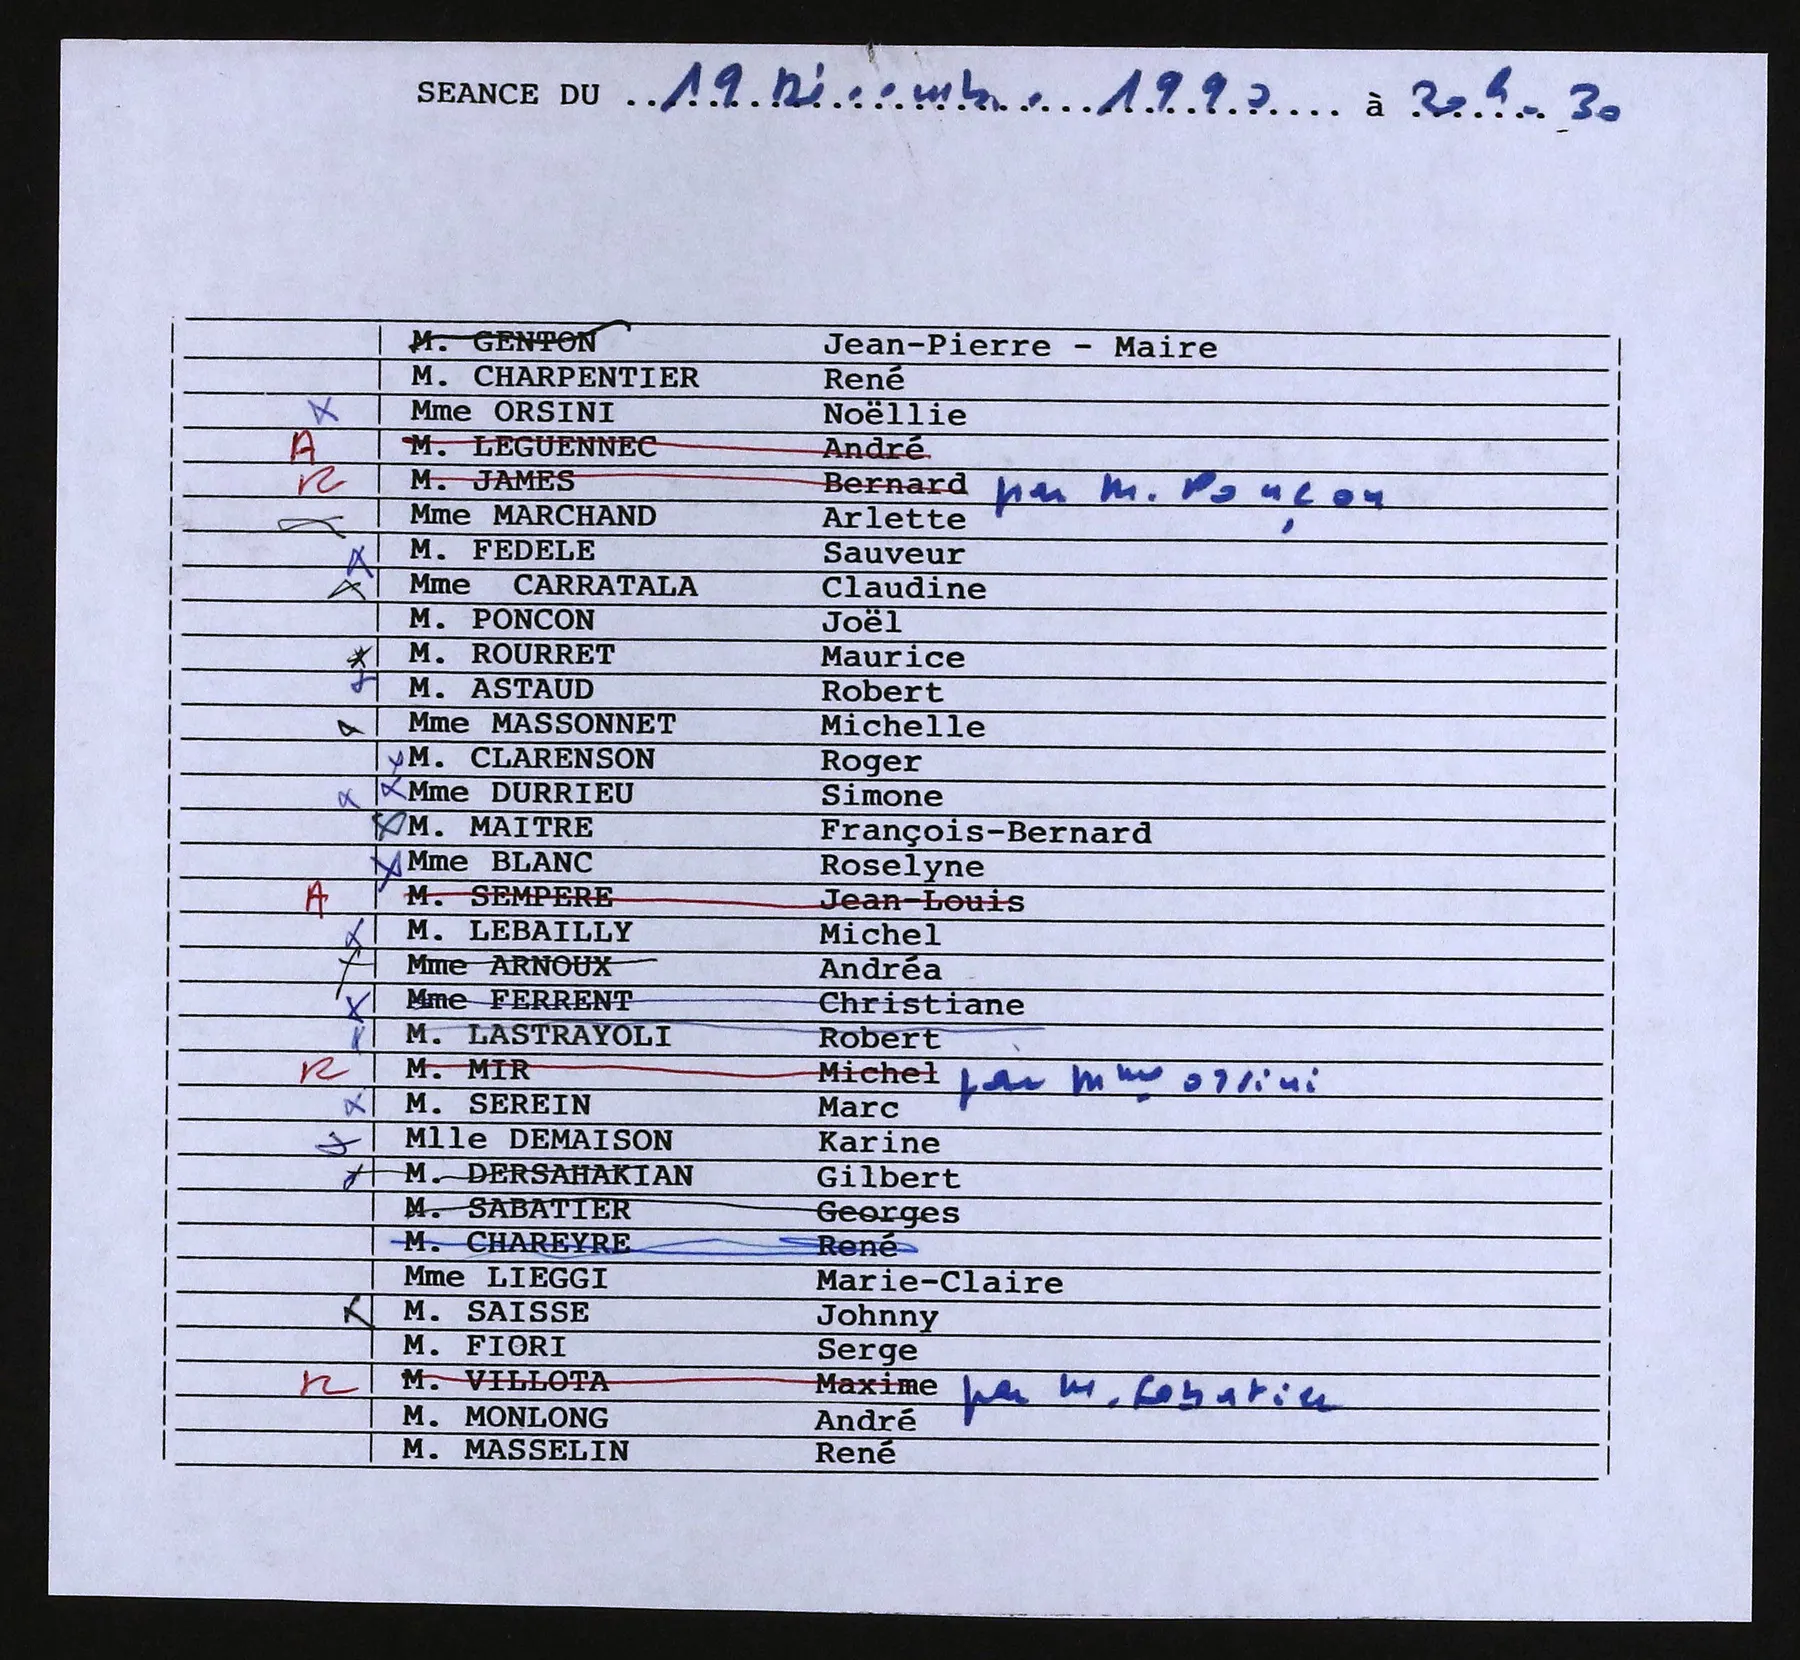 SEANCE DU 19 Décembre 199 à 20h. 30
M. GENTON Jean-Pierre - Maire
M. CHARPENTIER René
Mme ORSINI Noëllie
A M. LEGUENNEC André
R M. JAMES Bernard par M. Ponçon
Mme MARCHAND Arlette
M. FEDELE Sauveur
Mme CARRATALA Claudine
M. PONCON Joël
M. ROURRET Maurice
M. ASTAUD Robert
Mme MASSONNET Michelle
M. CLARENSON Roger
Mme DURRIEU Simone
M. MAITRE François-Bernard
Mme BLANC Roselyne
A M. SEMPERE Jean-Louis
M. LEBAILLY Michel
Mme ARNOUX Andréa
Mme FERRENT Christiane
M. LASTRAYOLI Robert
R M. MIR Michel par Mme orsini
M. SEREIN Marc
Mlle DEMAISON Karine
M. DERSAHAKIAN Gilbert
M. SABATIER Georges
M. CHAREYRE René
Mme LIEGGI Marie-Claire
M. SAISSE Johnny
M. FIORI Serge
R M. VILLOTA Maxime par M. Sabatier
M. MONLONG André
M. MASSELIN René